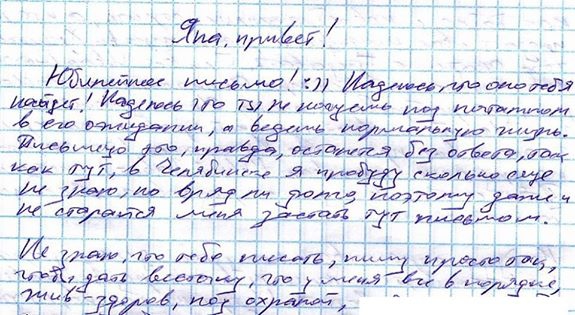 Яна, привет!
Юбилейное письмо! :)) Надеюсь, что оно тебя
найдёт! Надеюсь что ты не ночуешь под почтамтом
в его ожидании, а ведёшь нормальную жизнь.
Письмецо это, правда, останется без ответа, так
как тут, в Челябинске я пробуду сколько ещё
не знаю, но вряд ли долго, поэтому даже и
не старайся меня застать тут письмом.
Не знаю, что тебе писать, пишу просто так,
чтобы дать весточку, что у меня всё в порядке,
жив-здоров, под охраной,